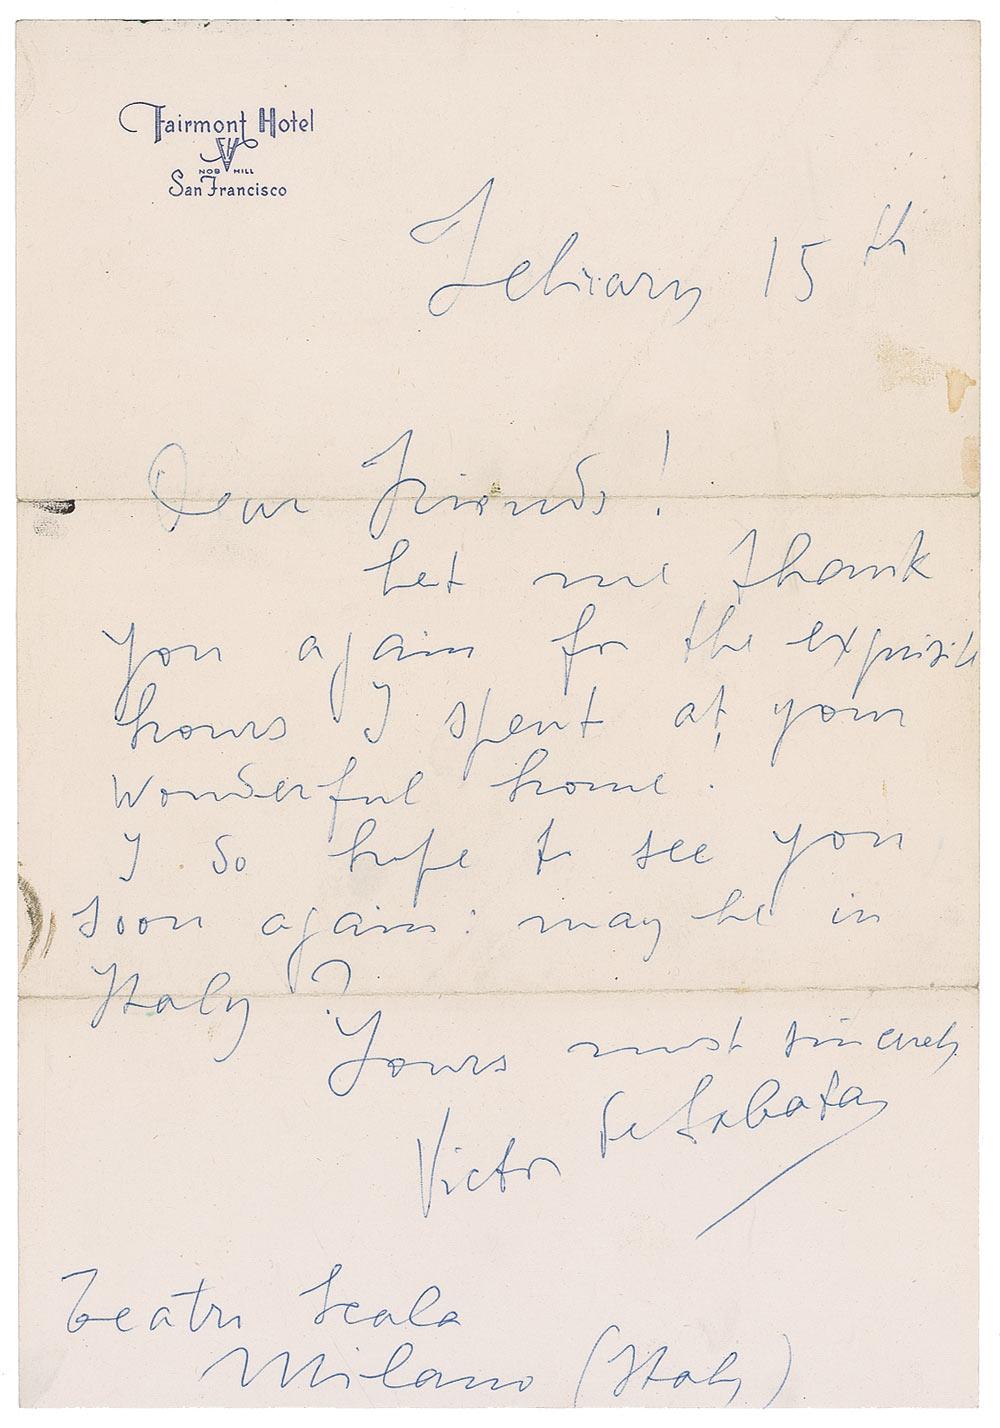 Fairmont Hotel
FH
NOB HILL
San Francisco
February 15th
Dear Friends!
Let me thank
you again for the exquisite
hours I spent at your
wonderful home!
I so hope to see you
soon again: may be in
Italy?
Yours most sincerely
Victor de Sabata
Teatro Scala
Milano (Italy)